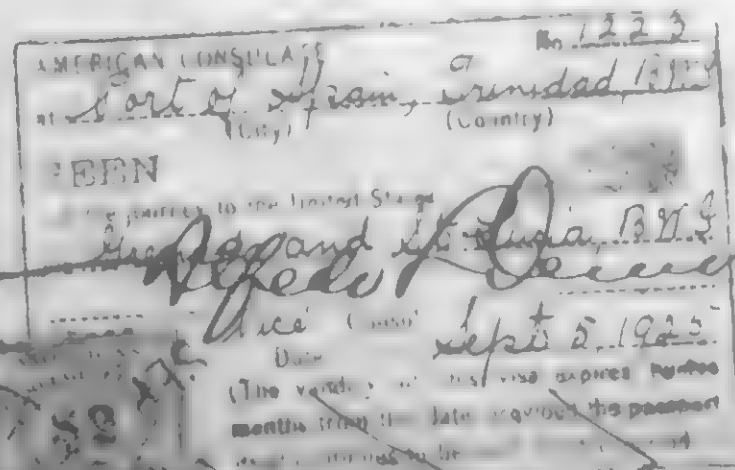 No. 1223
AMERICAN CONSULATE
at Port of Spain, Trinidad, BWI
(City) (Country)
SEEN
journey to the United States
and St. Lucia, B.W.I.
Alfredo
Vice Consul
Date Sept 5, 1925
(The validity of this visa expires twelve
months from the date provided the passport
to be
$2